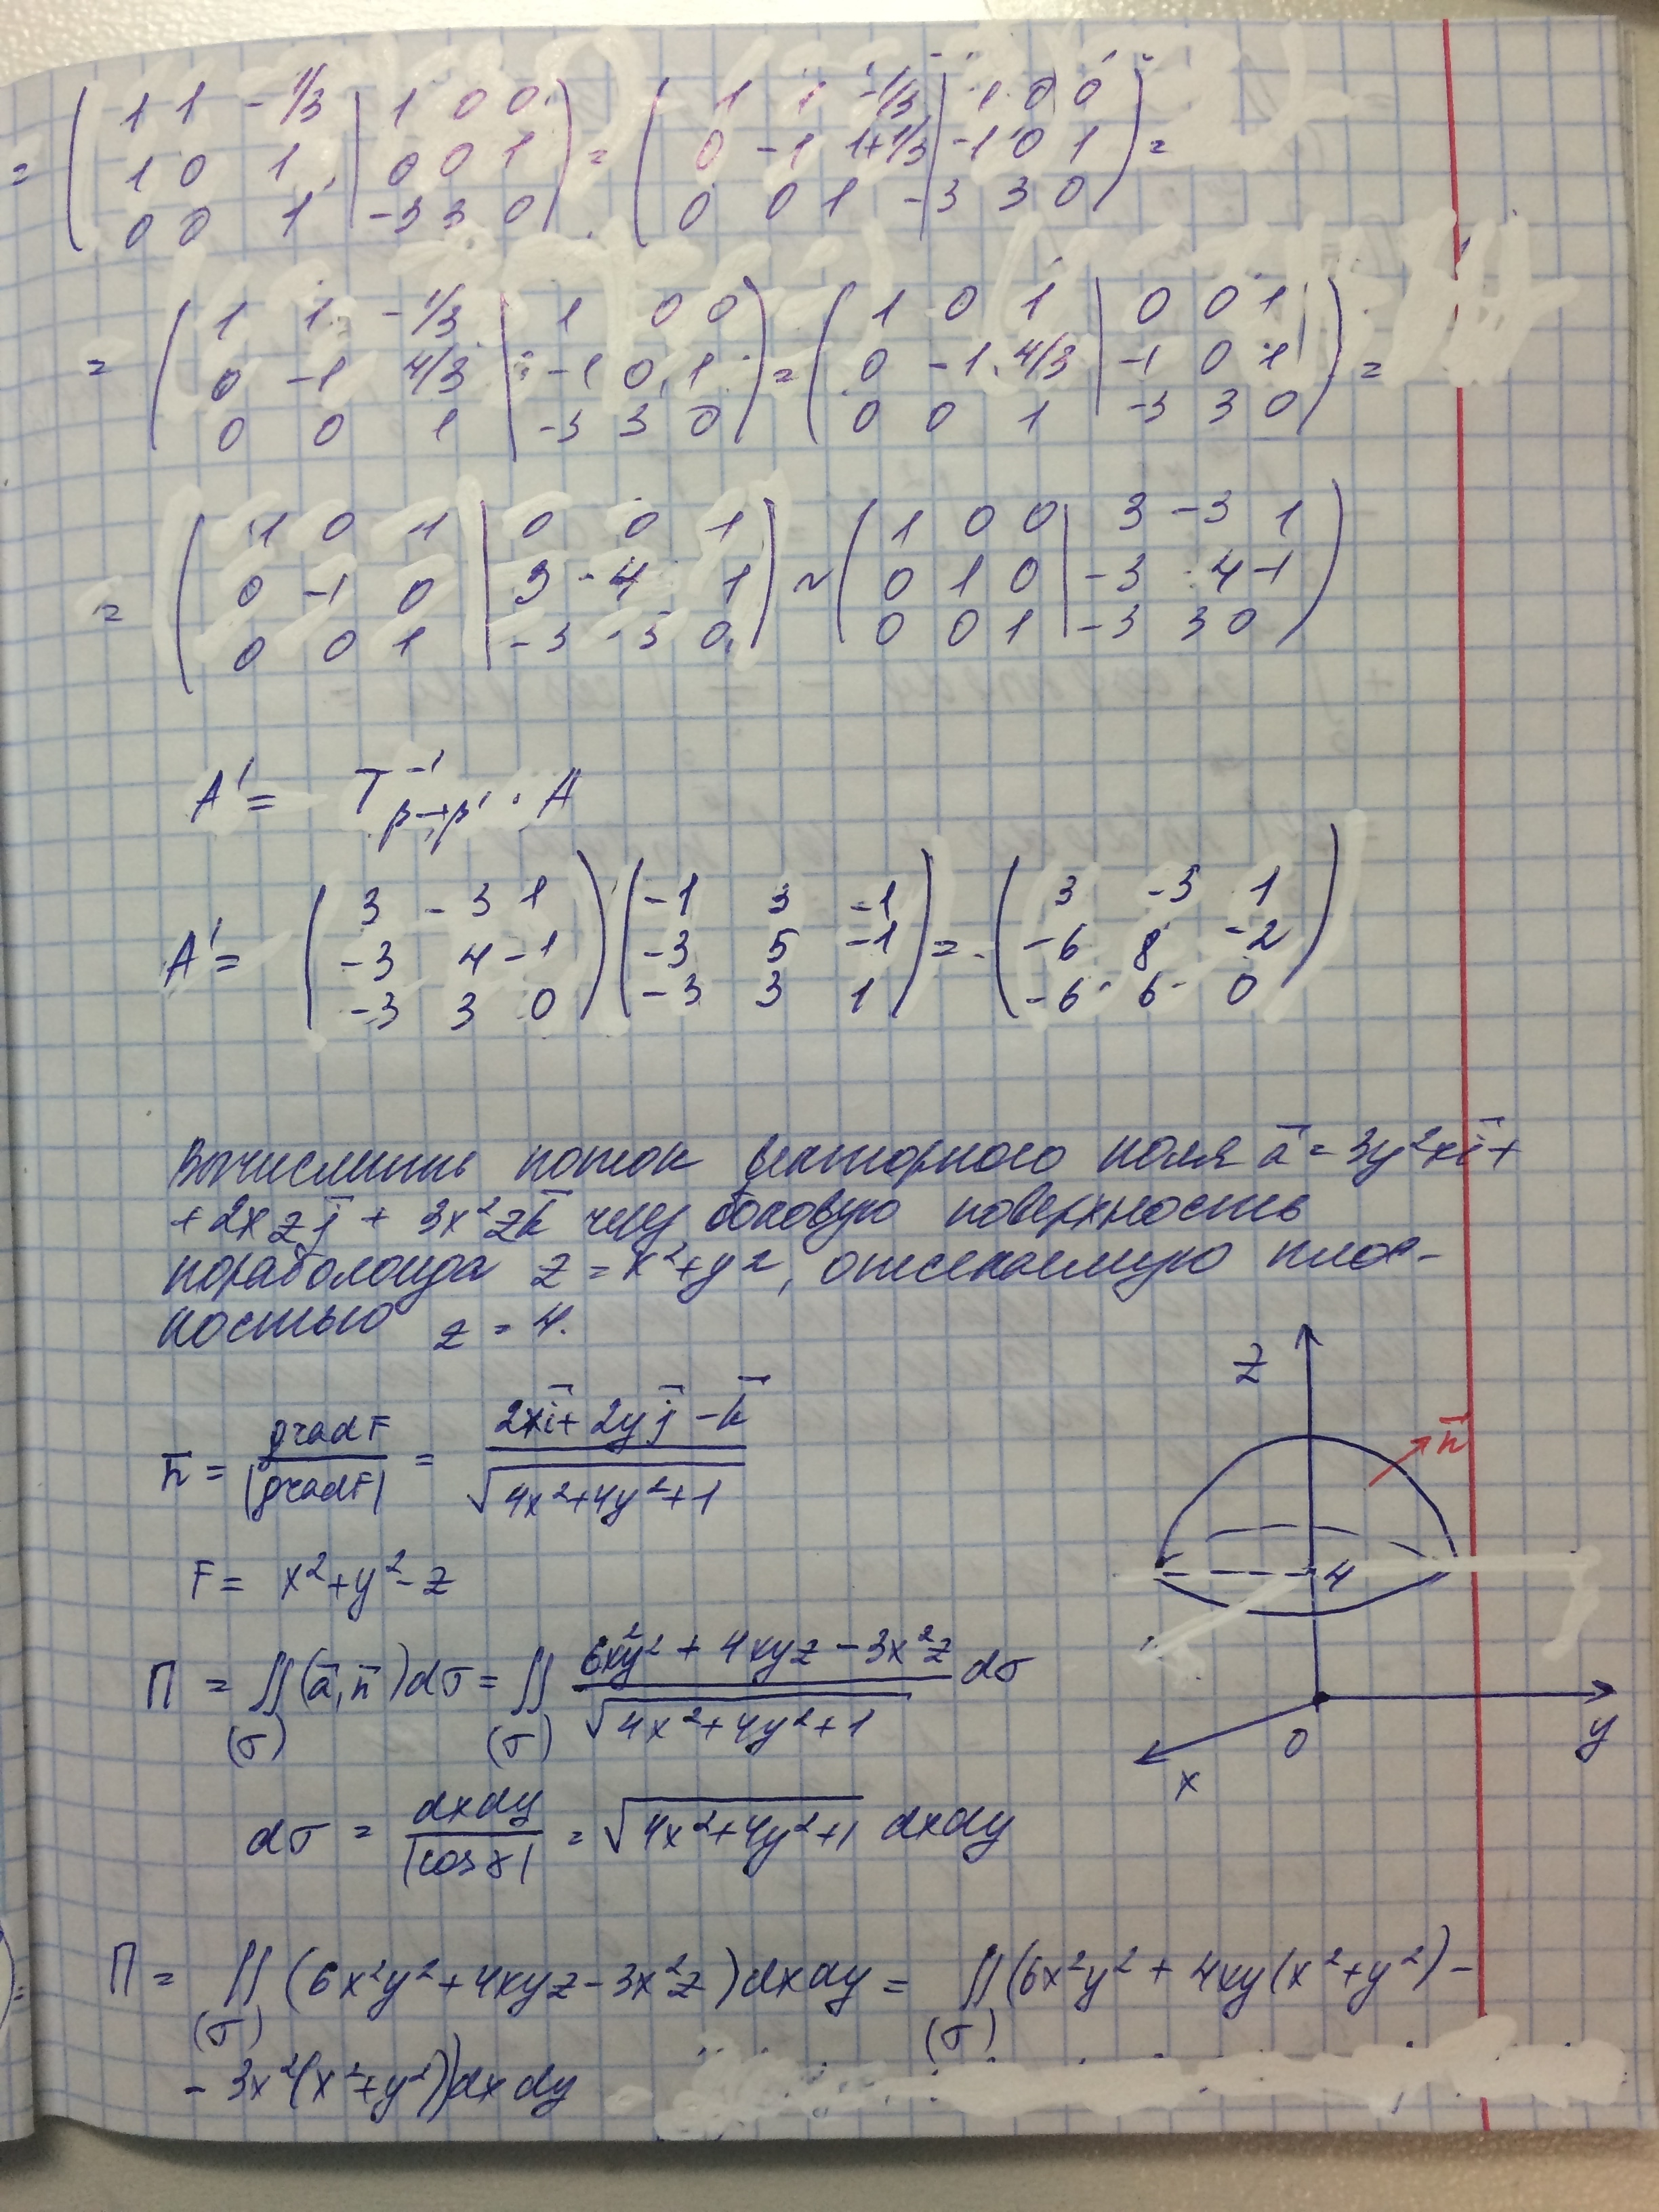 = ( 1 1 -1/3 | 1 0 0 ) = ( 1 1 -1/3 | 1 0 0 ) =
( 1 0 1 | 0 0 1 ) ( 0 -1 1+1/3 | -1 0 1 )
( 0 0 1 | -3 3 0 ) ( 0 0 1 | -3 3 0 )
= ( 1 1 -1/3 | 1 0 0 ) = ( 1 0 1 | 0 0 1 ) =
( 0 -1 4/3 | -1 0 1 ) ( 0 -1 4/3 | -1 0 1 )
( 0 0 1 | -3 3 0 ) ( 0 0 1 | -3 3 0 )
= ( 1 0 1 | 0 0 1 ) ~ ( 1 0 0 | 3 -3 1 )
( 0 -1 0 | 3 -4 1 ) ( 0 1 0 | -3 4 -1 )
( 0 0 1 | -3 3 0 ) ( 0 0 1 | -3 3 0 )
A' = T⁻¹ p→p' · A
A' = ( 3 -3 1 ) ( -1 3 -1 ) = ( 3 -3 1 )
( -3 4 -1 ) ( -3 5 -1 ) ( -6 8 -2 )
( -3 3 0 ) ( -3 3 1 ) ( -6 6 0 )
Вычислить поток векторного поля a̅ = 3y²xi̅ +
+ 2xzj̅ + 3x²zk̅ через боковую поверхность
пораболоида z = x²+y², отсекаемую плос-
костью z = 4.
n̅ = gradF / |gradF| = (2xi̅ + 2yj̅ - k̅) / √(4x²+4y²+1)
F = x²+y²-z
П = ∬(σ) (a̅, n̅)dσ = ∬(σ) (6x²y² + 4xyz - 3x²z) / √(4x²+4y²+1) dσ
dσ = dxdy / |cosγ| = √(4x²+4y²+1) dxdy
П = ∬(σ) (6x²y²+4xyz-3x²z)dxdy = ∬(σ) (6x²y² + 4xy(x²+y²) -
- 3x²(x²+y²))dxdy
z
n̅
4
0
y
x